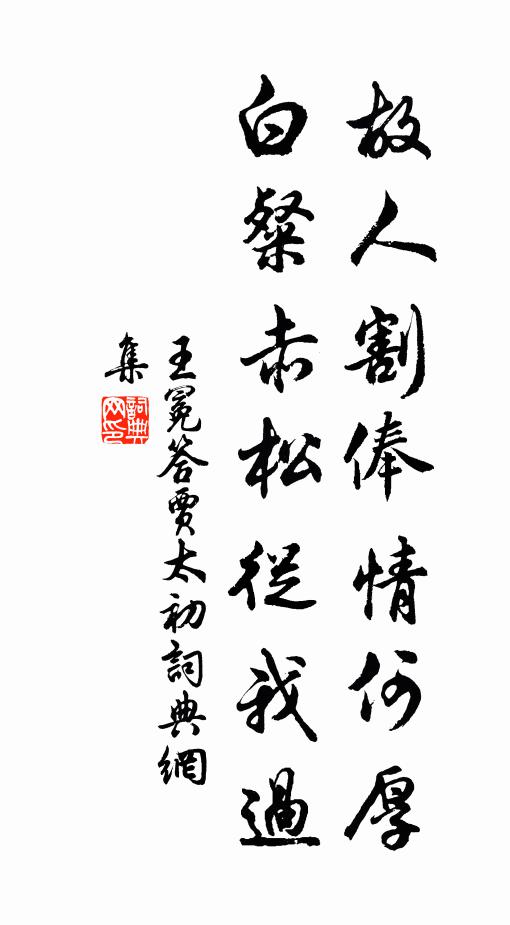 故人割俸情何厚
白粲赤松從我過
王冕答賈太初詞典網
集
詞典
网印